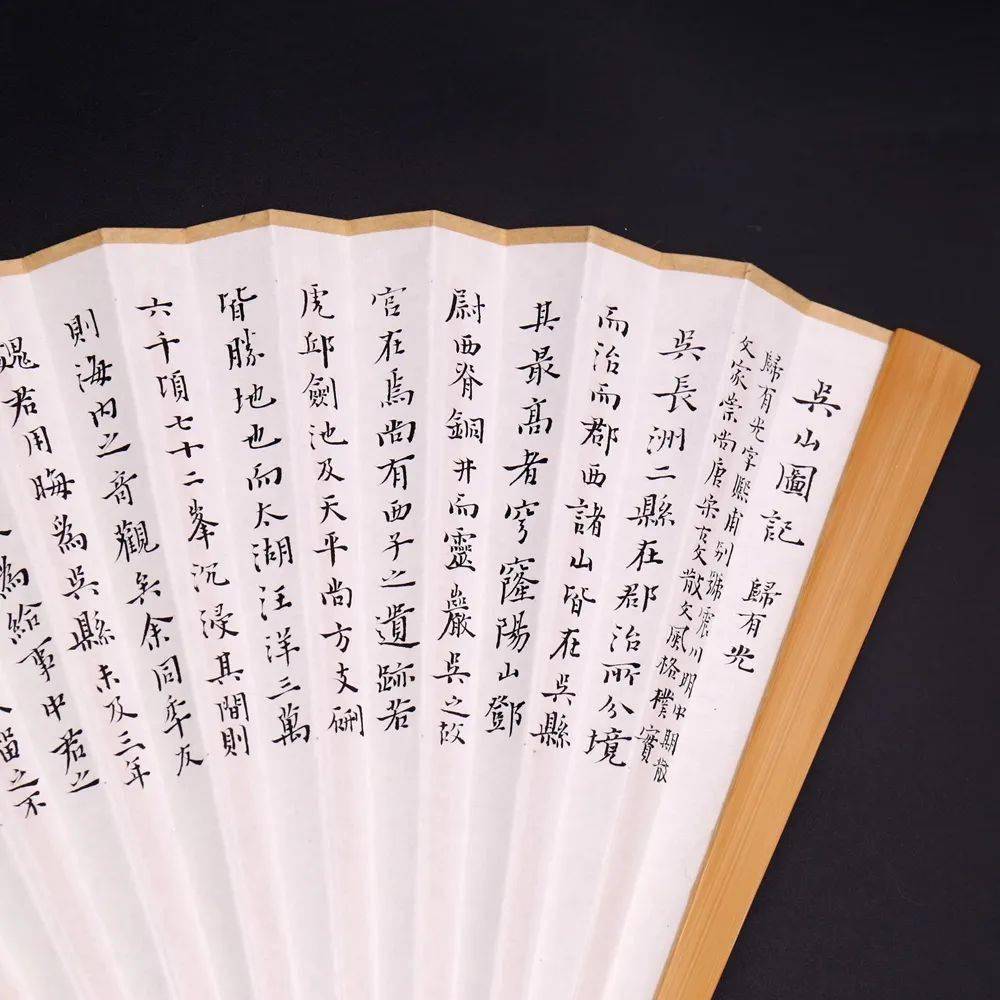 吳山圖記 歸有光
歸有光字熙甫別號震川明中期散
文家崇尚唐宋古文散文風格樸實
吳長洲二縣在郡治所分境
而治而郡西諸山皆在吳縣
其最高者穹窿陽山鄧
尉西脊銅井而靈巖吳之故
宮在焉尚有西子之遺跡若
虎邱劍池及天平尚方支硎
皆勝地也而太湖汪洋三萬
六千頃七十二峯沉浸其間則
則海内之奇觀矣余同年友
魏君用晦為吳縣未及三年
入為給事中君之
留之不